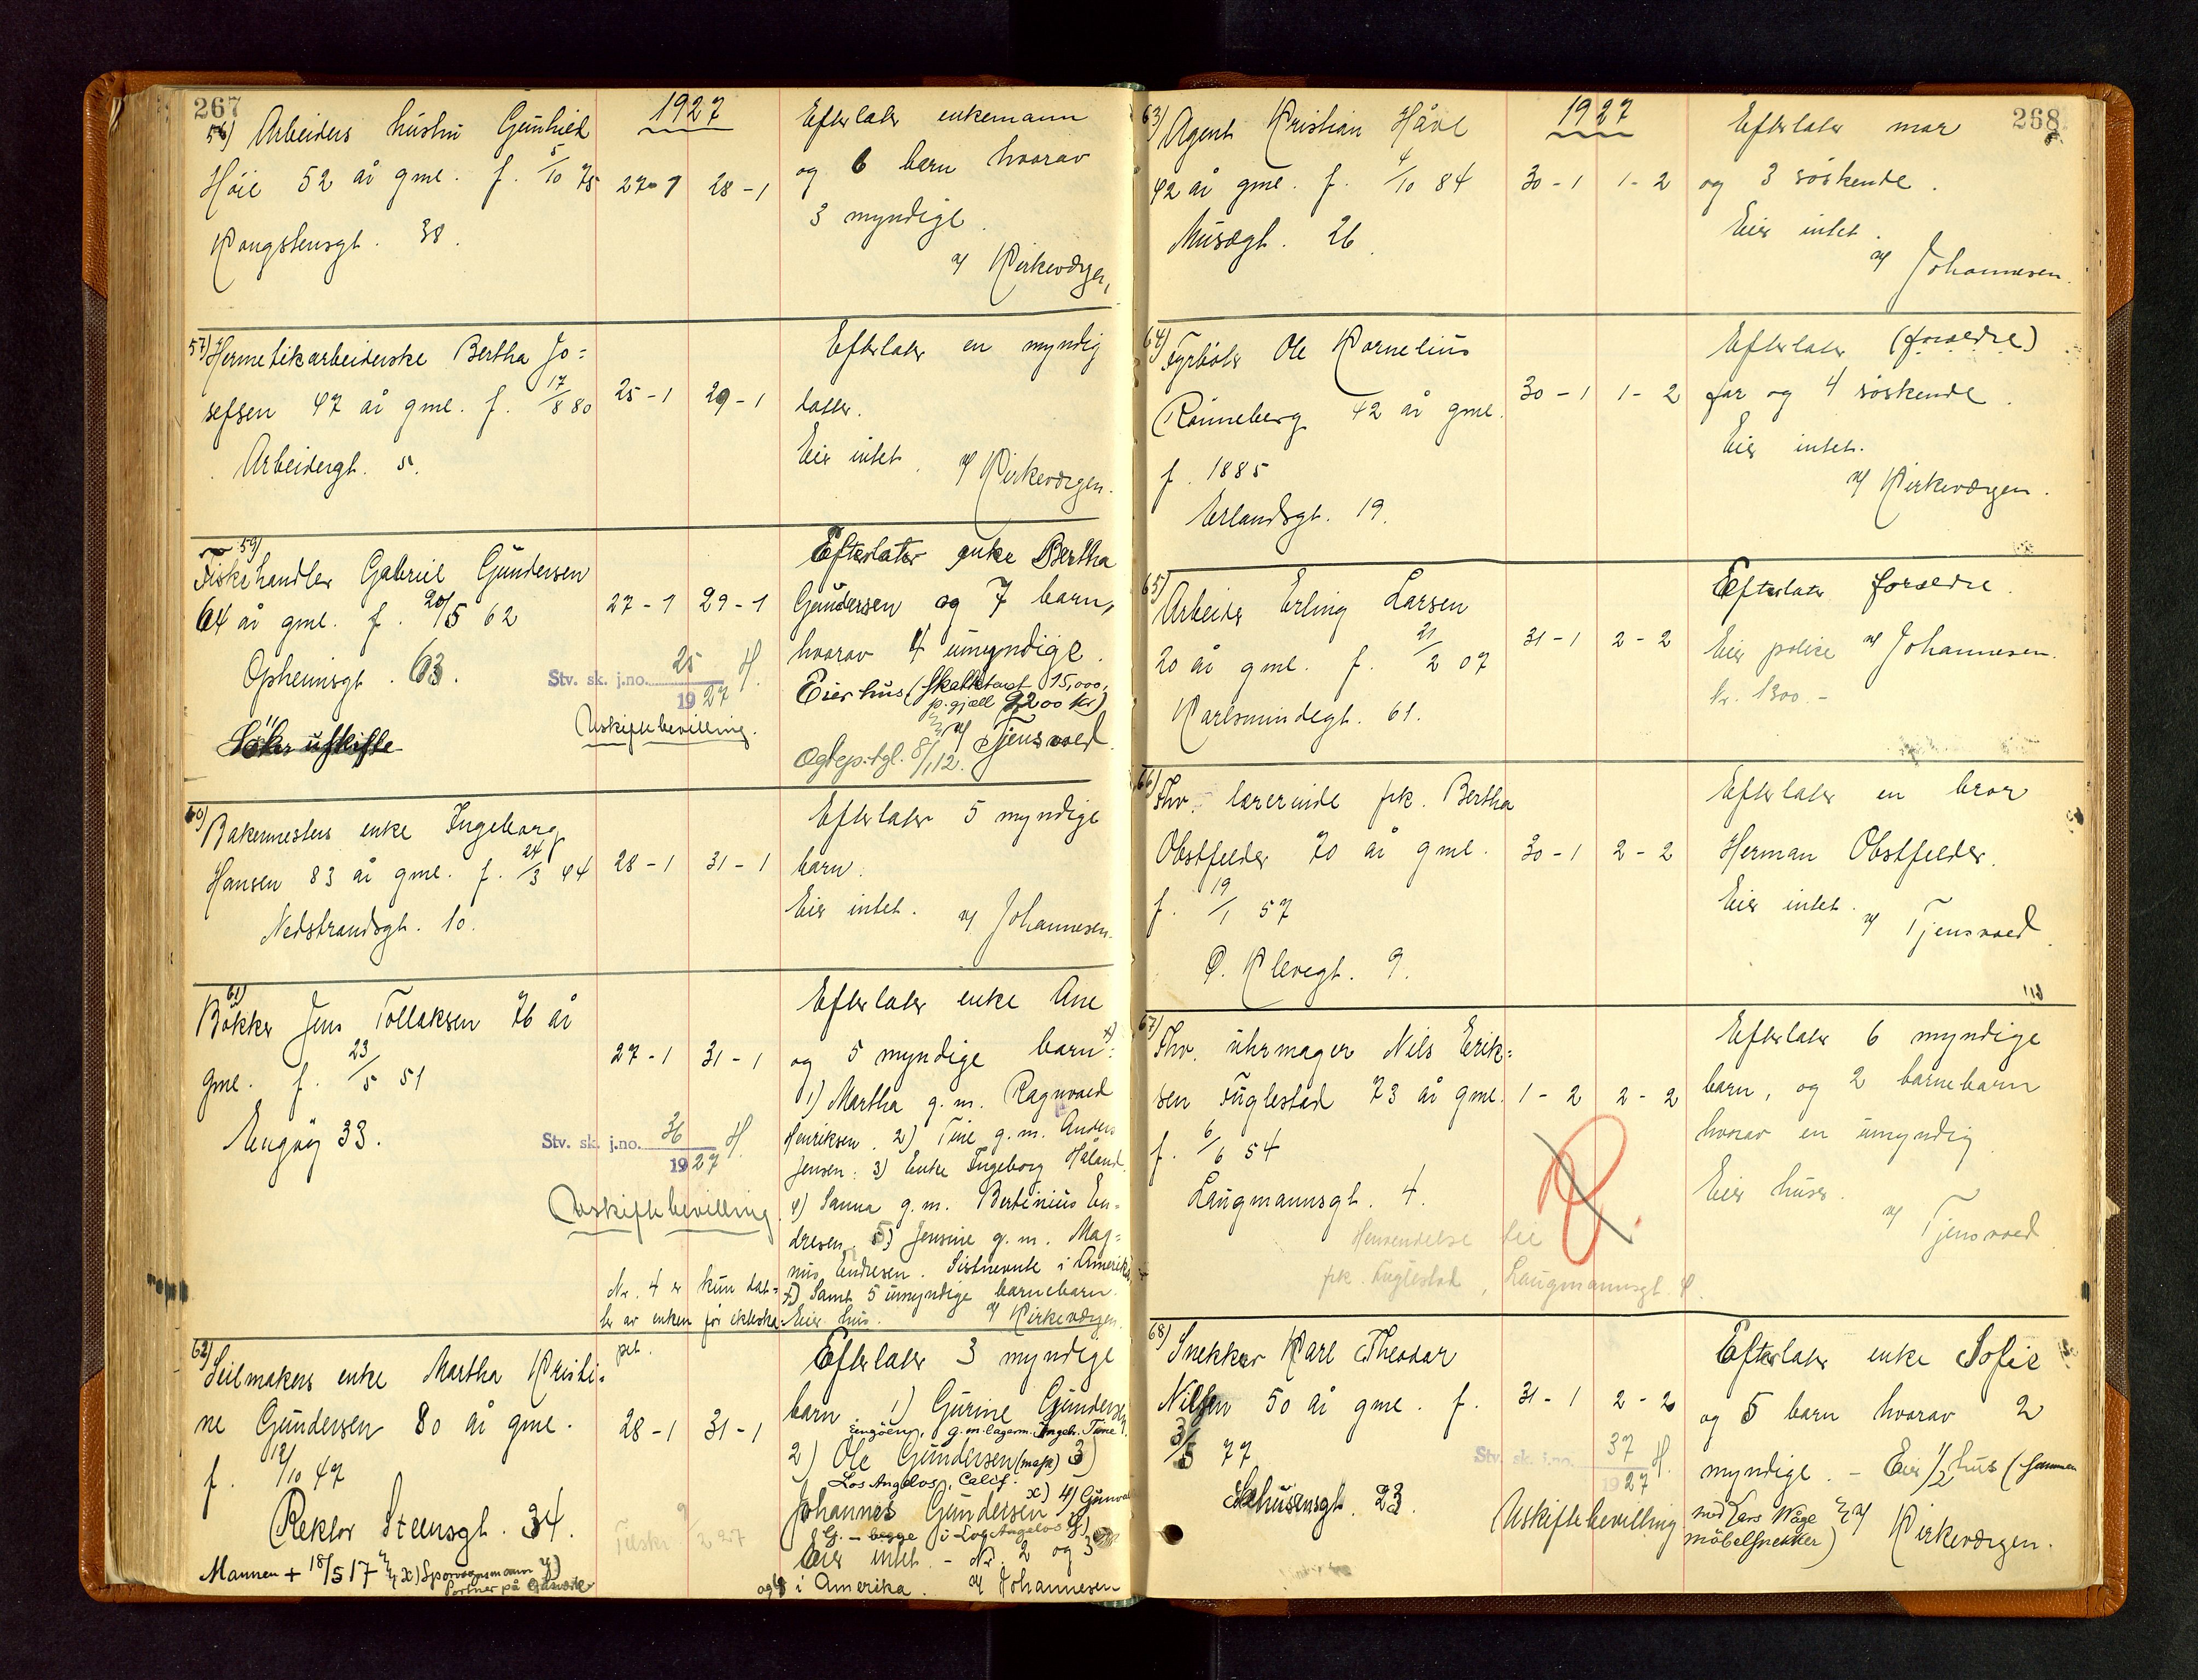 267
1927
56) Arbeiders hustru Gunhild
Höie 52 år gml. f. 5/10 75
27-1 28-1
Kongstensgt. 38.
Efterlater enkemann
og 6 barn hvorav
3 myndige.
a/ Kirkevergen,
57) Hermetikarbeiderske Bertha Jo=
sefsen 47 år gml. f. 17/8 80
25-1 29-1
Arbeidergt. 5.
Efterlater en myndig
datter.
Eier intet.
a/ Kirkevergen.
59)
Fiskehandler Gabriel Gundersen
64 år gml. f. 20/5 62
27-1 29-1
Opheimsgt. 63.
Stv. sk. j.no. 25 H.
1927
Söker uskifte
Uskiftebevilling.
Efterlater enke Bertha
Gundersen og 7 barn,
hvorav 4 umyndige.
Eier hus (skattetaxt 15,000,
p. gjæld 9200 kr)
a/ Tjensvold.
8/1 12.
60) Bakermesters enke Ingeborg
Hansen 83 år gml. f. 24/3 44
28-1 31-1
Nedstrandsgt. 10.
Efterlater 5 myndige
barn.
Eier intet.
a/ Johannesen.
61)
Bökker Jens Tollaksen 76 år
gml. f. 23/5 51
27-1 31-1
Engöy 33.
Stv. sk. j.no. 36 H.
1927
Uskiftebevilling
Nr. 4 er kun dat=
ter av enken før ekteska=
pet.
Efterlater enke Ane
og 5 myndige barn x):
1) Martha g.m. Ragnvald
Henriksen. 2) Tine g.m. Anders
Jensen. 3) Enke Ingeborg Håland.
4) Sanna g.m. Bertinius En=
dresen. 5) Jensine g.m. Mag=
nus Endresen. Sistnevnte i Amerika
x) Samt 5 umyndige barnebarn.
Eier hus. a/ Kirkevergen.
62) Seilmakers enke Martha Kristi=
ne Gundersen 80 år gml.
28-1 31-1
f. 12/10 47
Rektor Steensgt. 34.
Tilskr. 9/2 27
Mannen + 18/5 17 x) Sporvognsmann y)
Portner på
Efterlater 3 myndige
barn. 1) Gurine Gundersen
Engöen, g.m. lagerm. Ingeb. Time
2) Ole Gundersen (mask) 3)
Los Angelos, Calif.
Johannes Gundersen x) 4) Gunvald
G. - begge i Los Angelos y)
Eier intet. - Nr. 2 og 3
og 4 i Amerika. a/ Johannesen
268
1927
63) Agent Kristian Håvl
42 år gml. f. 4/10 84
30-1 1-2
Musegt. 26.
Efterlater mor
og 3 söskende.
Eier intet.
a/ Johannesen.
64) Fyrböter Ole Kornelius
Rönneberg 42 år gml.
30-1 1-2
f. 1885
Erlandsgt. 19.
Efterlater (foreldre)
far og 4 söskende.
Eier intet.
a/ Kirkevergen.
65) Arbeider Erling Larsen
20 år gml. f. 21/2 07
31-1 2-2
Karlsmindegt. 61.
Efterlater foreldre.
Eier police a/ Johannesen.
kr. 1300.-
66) Fhv. lærerinde frk. Bertha
Obstfelder 70 år gml.
30-1 2-2
f. 19/1 57
Ø. Klevegt. 9.
Efterlater en bror
Herman Obstfelder.
Eier intet.
a/ Tjensvold.
67) Fhv. uhrmager Nils Erik=
sen Fuglestad 73 år gml.
1-2 2-2
f. 6/6 54
Laugmannsgt. 4.
Henvendelse til
frk. Fuglestad, Laugmannsgt. 4.
Efterlater 6 myndige
barn, og 2 barnebarn
hvorav en umyndig.
Eier huser.
a/ Tjensvold.
68) Snekker Karl Theodor
Nilsen 50 år gml. f.
31-1 2-2
3/5 77
Stv. sk. j.no. 37 H.
1927
Sehusensgt. 23.
Uskiftebevilling
Efterlater enke Sofie
og 5 barn hvorav 2
myndige. - Eier 1/2 hus (sammen
med Lars Våge
möbelsnekker) a/ Kirkevergen.